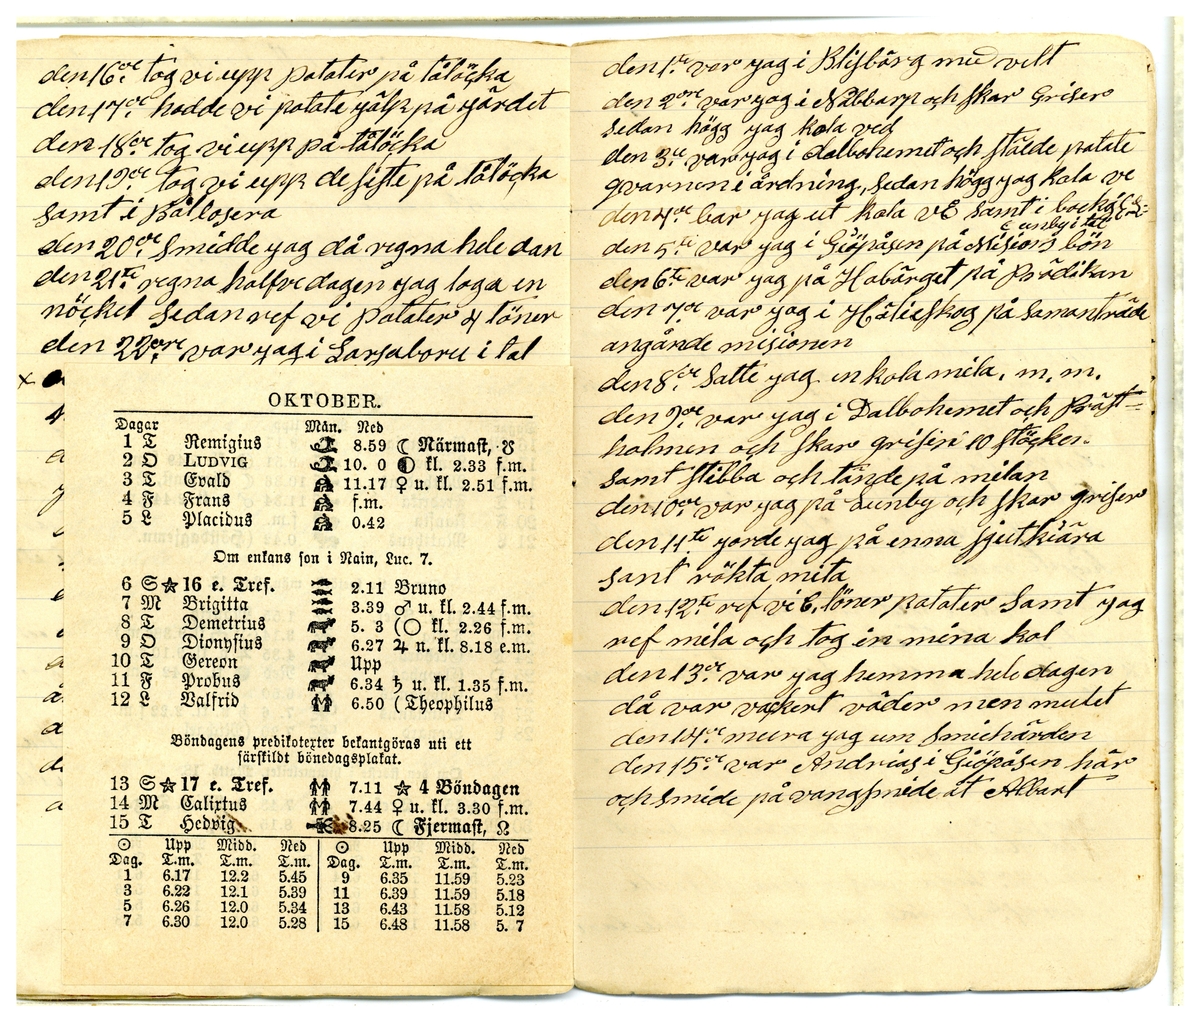 den 16de tog vi upp potater på tålöcka
den 17de hadde vi potate jälp på gärdet
den 18de tog vi upp på tålöcka
den 19de tog vi upp de siste på tålöcka
samt i Kållosera
den 20de Smidde yag då regna hele dan
den 21te regna halfve dagen yag laga en
nöckel Sedan ref vi potater 4 töner
den 22dre var yag i Larsaboru i tal
OKTOBER.
Dagar Mån. Ned
1 T Remigius 8.59 ☾ Närmast, ☋
2 O LUDVIG 10. 0 kl. 2.33 f.m.
3 T Evald 11.17 ♀ u. kl. 2.51 f.m.
4 F Frans f.m.
5 L Placidus 0.42
Om enkans son i Nain, Luc. 7.
6 S ☆ 16 e. Tref. 2.11 Bruno
7 M Brigitta 3.39 ♂ u. kl. 2.44 f.m.
8 T Demetrius 5. 3 (○ kl. 2.26 f.m.
9 O Dionysius 6.27 ♃ n. kl. 8.18 e.m.
10 T Gereon Upp
11 F Probus 6.34 ♄ u. kl. 1.35 f.m.
12 L Valfrid 6.50 (Theophilus
Böndagens predikotexter bekantgöras uti ett
särskildt bönedagsplakat.
13 S ☆ 17 e. Tref. 7.11 ☆ 4 Böndagen
14 M Calixtus 7.44 ♀ u. kl. 3.30 f.m.
15 T Hedvig 8.25 ☾ Fjermast, ☊
☉ Upp Midd. Ned ☉ Upp Midd. Ned
Dag. T.m. T.m. T.m. Dag. T.m. T.m. T.m.
1 6.17 12.2 5.45 9 6.35 11.59 5.23
3 6.22 12.1 5.39 11 6.39 11.59 5.18
5 6.26 12.0 5.34 13 6.43 11.58 5.12
7 6.30 12.0 5.28 15 6.48 11.58 5. 7
den 1ste var yag i Blisbärg med velt
den 2dre var yag i Näbbarp och skar Griser
sedan högg yag kola ved
den 3de var yag i dalbohemet och stälde potate
qvarnen i årdning, sedan högg yag kola ve
den 4de bar yag ut kola ve samt i
den 5te var yag i Giöpåsen på Misions bön
den 6te var yag på Habärget på Prädikan
den 7de var yag i Hälieskog på Samanträde
angånde misionen
den 8de Satte yag en kola mila. m. m.
den 9de var yag i Dalbohemet och Präst=
holmen och skar grisin 10 stöcken
samt stibba och tände på milan
den 10de var yag på Lunby och skar griser
den 11te yorde yag på enna sgutkiära
samt rökta mila
den 12te ref vi 6, töner potater samt yag
ref mila och tog in mina kol
den 13de var yag hemma hele dagen
då var vackert väder men mulet
den 14de mura yag um Smiehärden
den 15de var Andrias i Giöpåsen här
och Smide på vangsmide åt Albart